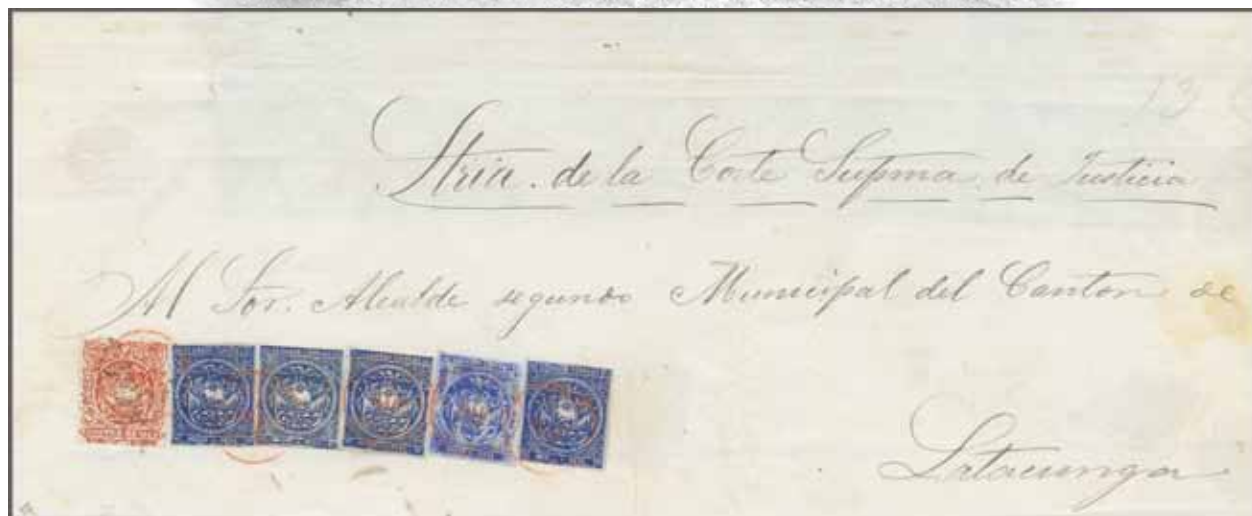 13
Stria. de la Corte Supma. de Justicia
Al Sor. Alcalde segundo Municipal del Canton de
Latacunga